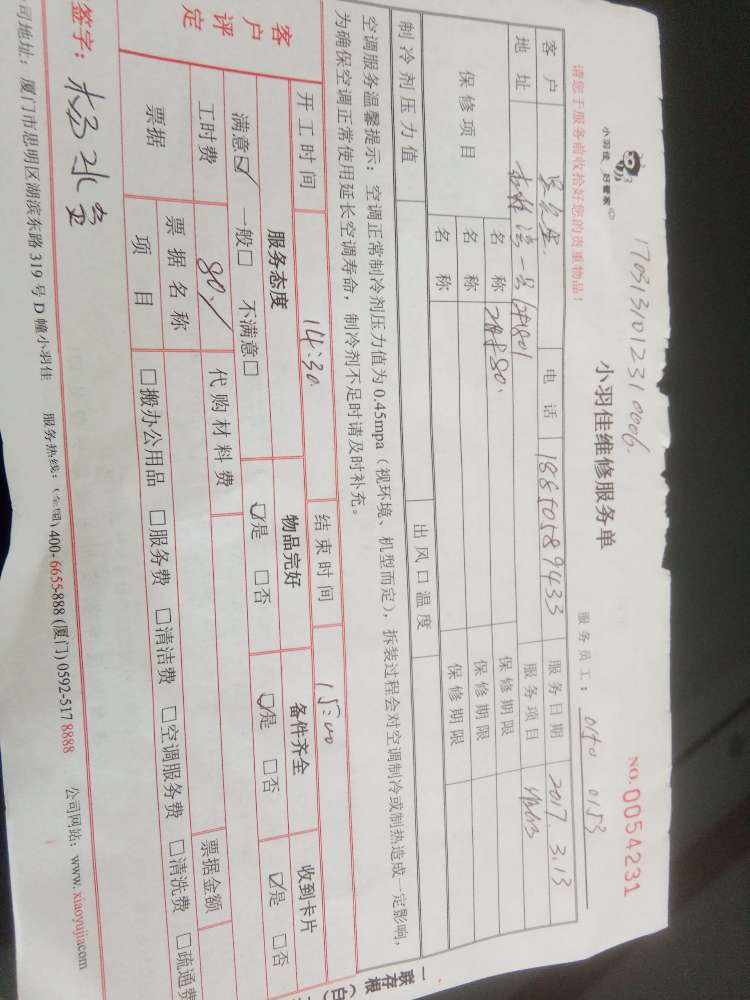 1703131012310006.
小羽佳 好管家
小羽佳维修服务单
NO.0054231
请您于服务前收拾好您的贵重物品：
服务员工： 0140 0153
客户 电话 18850589433 服务日期 2017.3.13
地址 服务项目 维修
保修项目 名称 保修期限
名称 保修期限
名称 保修期限
制冷剂压力值 出风口温度
空调服务温馨提示：空调正常制冷剂压力值为0.45mpa（视环境、机型而定），拆装过程会对空调制冷或制热造成一定影响，
为确保空调正常使用延长空调寿命，制冷剂不足时请及时补充。
客户评定
开工时间 14:30 结束时间 15:00
服务态度 物品完好 备件齐全 收到卡片
满意☑ 一般□ 不满意□ ☑是 □否 ☑是 □否 ☑是 □否
工时费 80 代购材料费
票据 票据名称 票据金额
项目 □搬办公用品 □服务费 □清洁费 □空调服务费 □清洗费 □疏通费
签字：
司地址：厦门市思明区湖滨东路319号D幢小羽佳 服务热线：(全国)400-6655-888 (厦门)0592-517 8888 公司网站：www.xiaoyujia.com
一联存根（白）